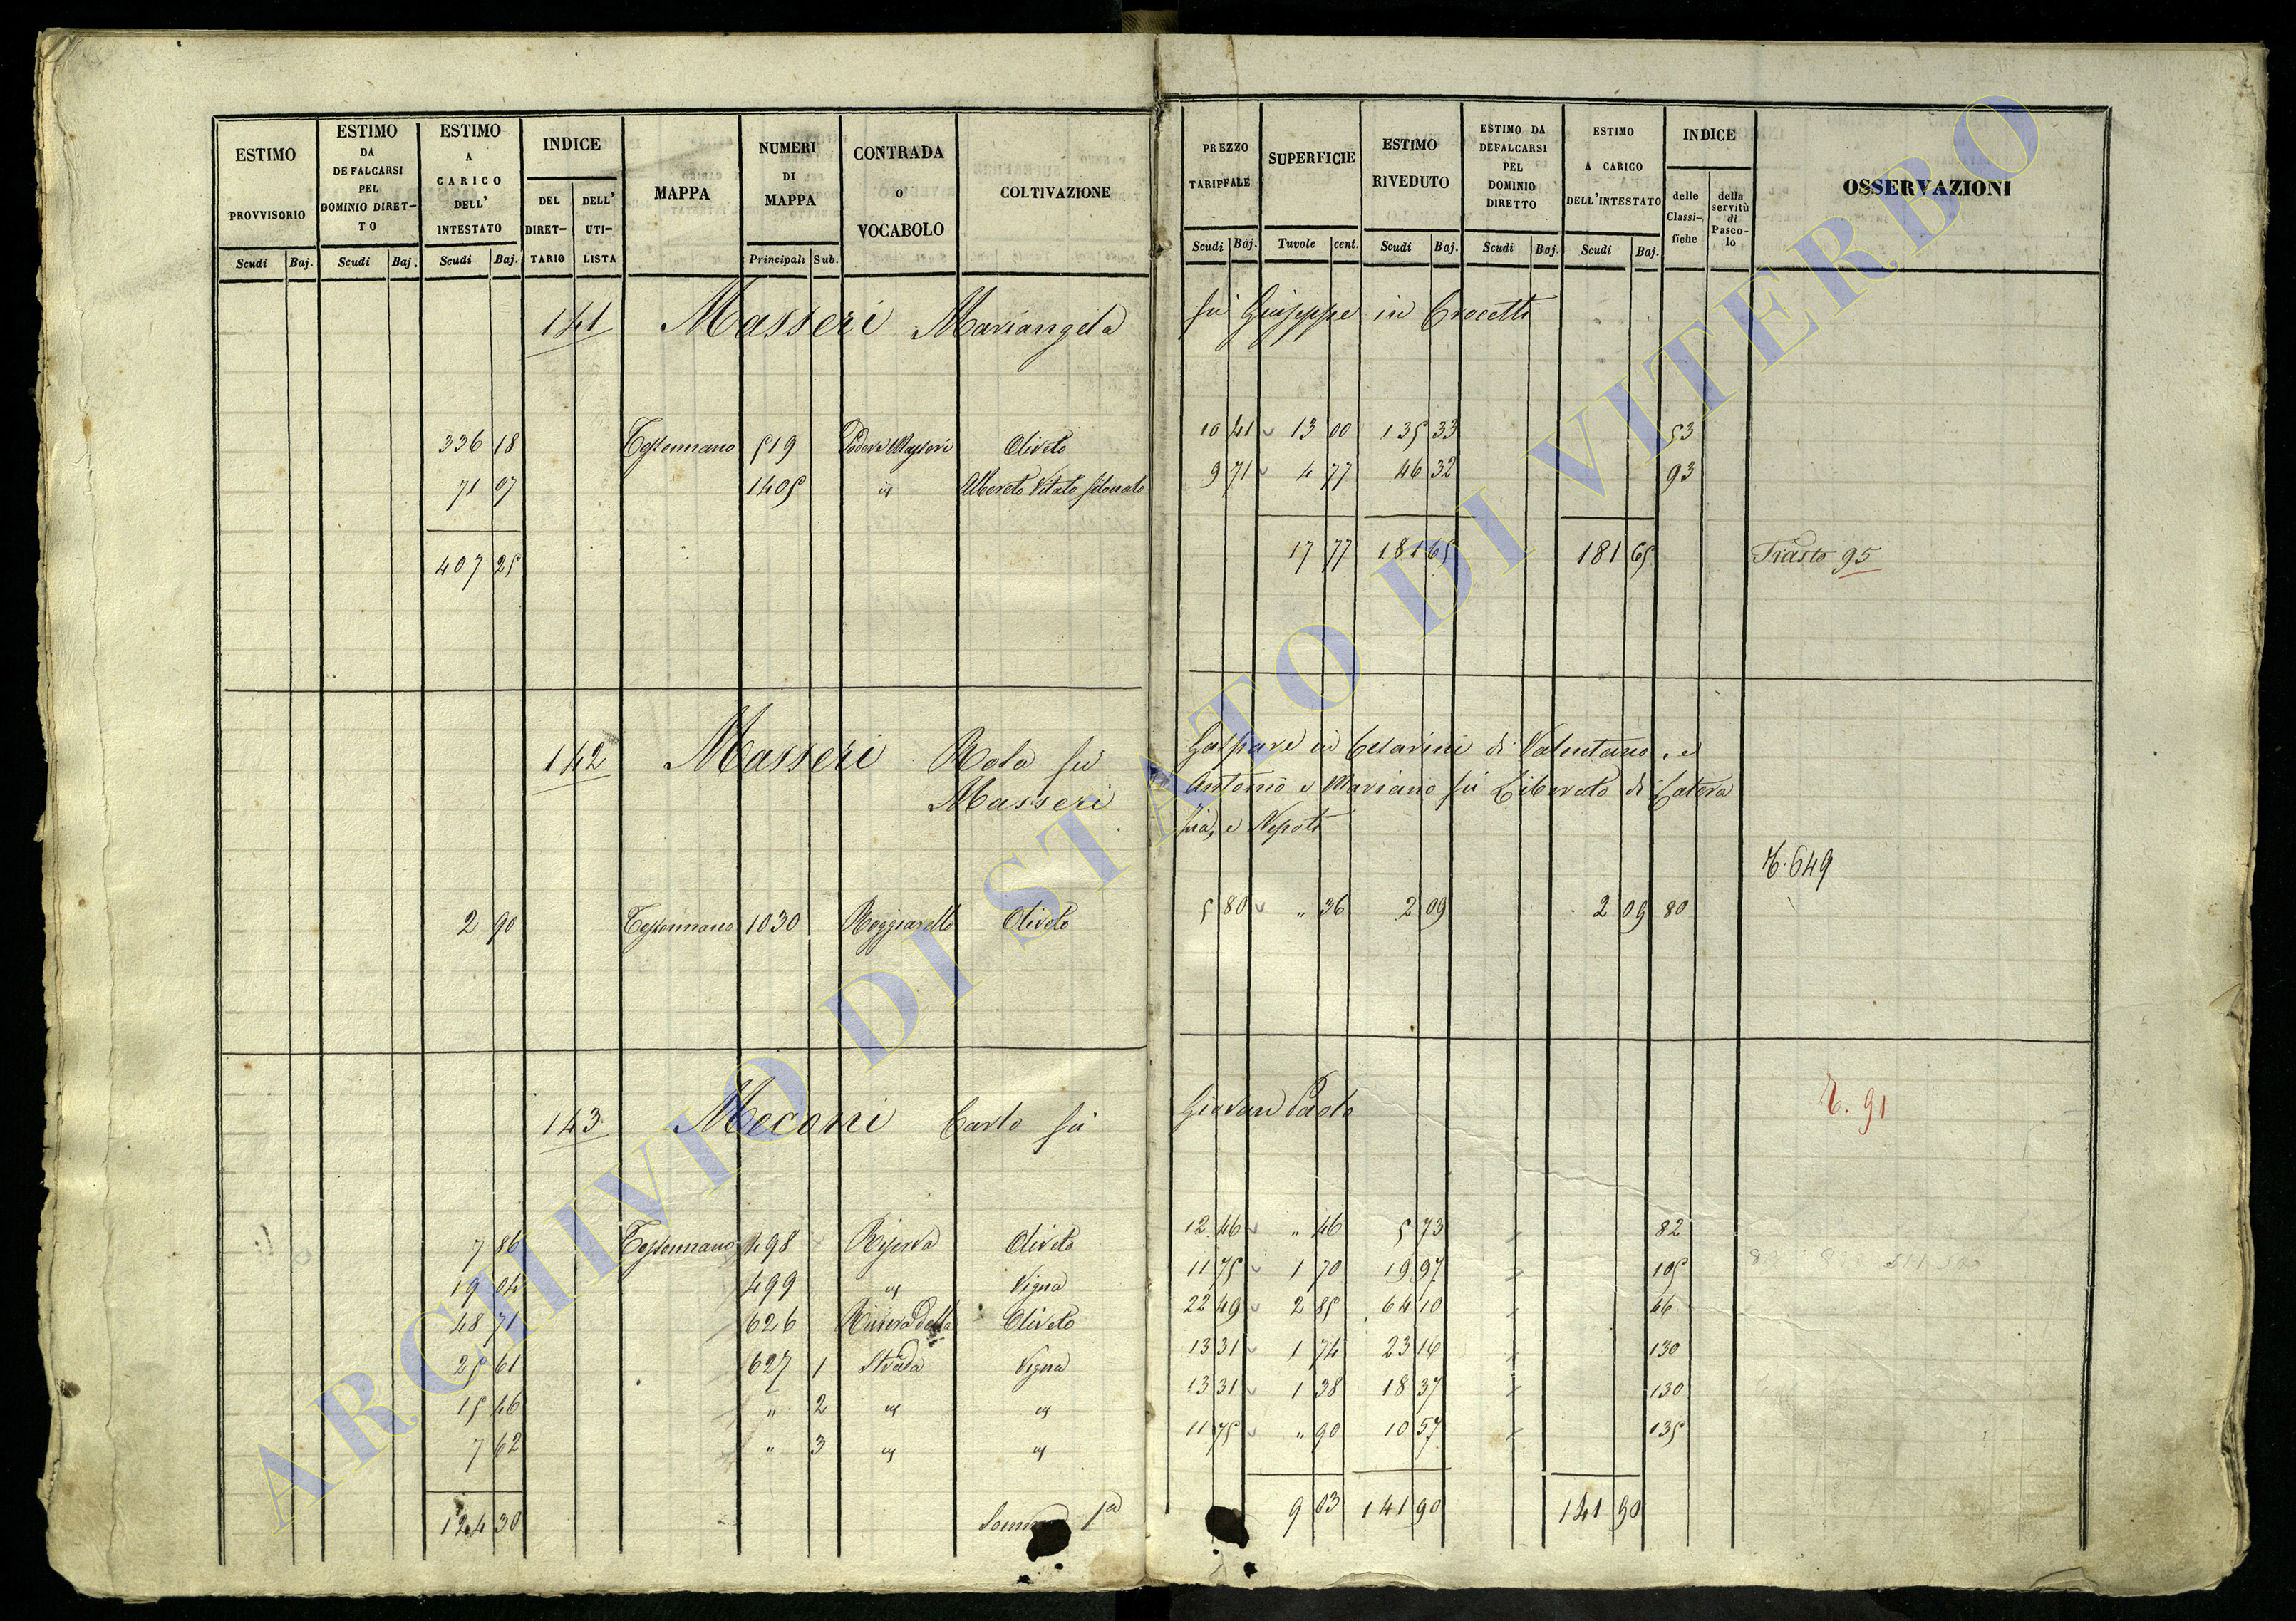 ESTIMO PROVVISORIO Scudi Baj.
ESTIMO DA DEFALCARSI PEL DOMINIO DIRETTO Scudi Baj.
ESTIMO A CARICO DELL' INTESTATO Scudi Baj.
INDICE DEL DIRET-TARIO DELL' UTI-LISTA
MAPPA
NUMERI DI MAPPA Principali Sub.
CONTRADA o VOCABOLO
COLTIVAZIONE
PREZZO TARIFFALE Scudi Baj.
SUPERFICIE Tavole cent.
ESTIMO RIVEDUTO Scudi Baj.
ESTIMO DA DEFALCARSI PEL DOMINIO DIRETTO Scudi Baj.
ESTIMO A CARICO DELL'INTESTATO Scudi Baj.
INDICE delle Classi-fiche della servitù di Pasco-lo
OSSERVAZIONI
141 Masseri Mariangela fù Giuseppe in Crocetti
336 18 Tessennano 519 Oliveto 10 41 13 00 135 33 53
71 07 1405 id Alberato Vitato 9 71 4 77 46 32 93
407 25 17 77 181 65 181 65 Trasto 95
142 Masseri Rosa fù Gaspare in Cesarini di Valentano, e
Masseri Antonio e Mariano fù Liberato di Latera
Zia, e Nepoti
T. 649
2 90 Tessennano 1030 Poggiarello Oliveto 5 80 " 36 2 09 2 09 80
143 Meconi Carlo fù Giovan Paolo T. 91
7 86 Tessennano 498 Riserva Oliveto 12 46 " 46 5 73 82
19 04 499 id Vigna 11 75 1 70 19 97 105
48 71 626 Oliveto 22 49 2 85 64 10 46
25 61 627 1 Strada Vigna 13 31 1 74 23 16 130
15 46 " 2 id id 13 31 1 38 18 37 130
7 62 " 3 id id 11 75 " 90 10 57 135
124 30 Somma 1a 9 03 141 90 141 90
ARCHIVIO DI STATO DI VITERBO